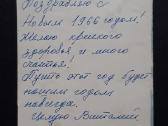 Поздравляю с
Новым 1966 годом.
Желаю крепкого
здоровья и много
счастья!
Пусть этот год будет
нашим годом
навсегда.
Целую Виталий